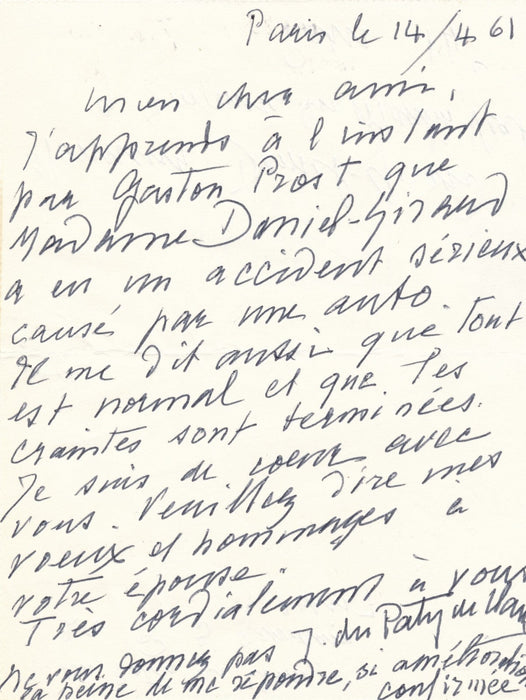 Paris le 14/4 61
mon cher ami,
J'apprends à l'instant
par Gaston Prost que
Madame Daniel-Giraud
a eu un accident sérieux
causé par une auto.
Il me dit aussi que tout
est normal et que les
craintes sont terminées.
Je suis de coeur avec
vous. Veuillez dire mes
voeux et hommages à
votre épouse.
Très cordialement à vous
J. du Paty de
ne vous donnez pas
la peine de me répondre, si amélioration
confirmée